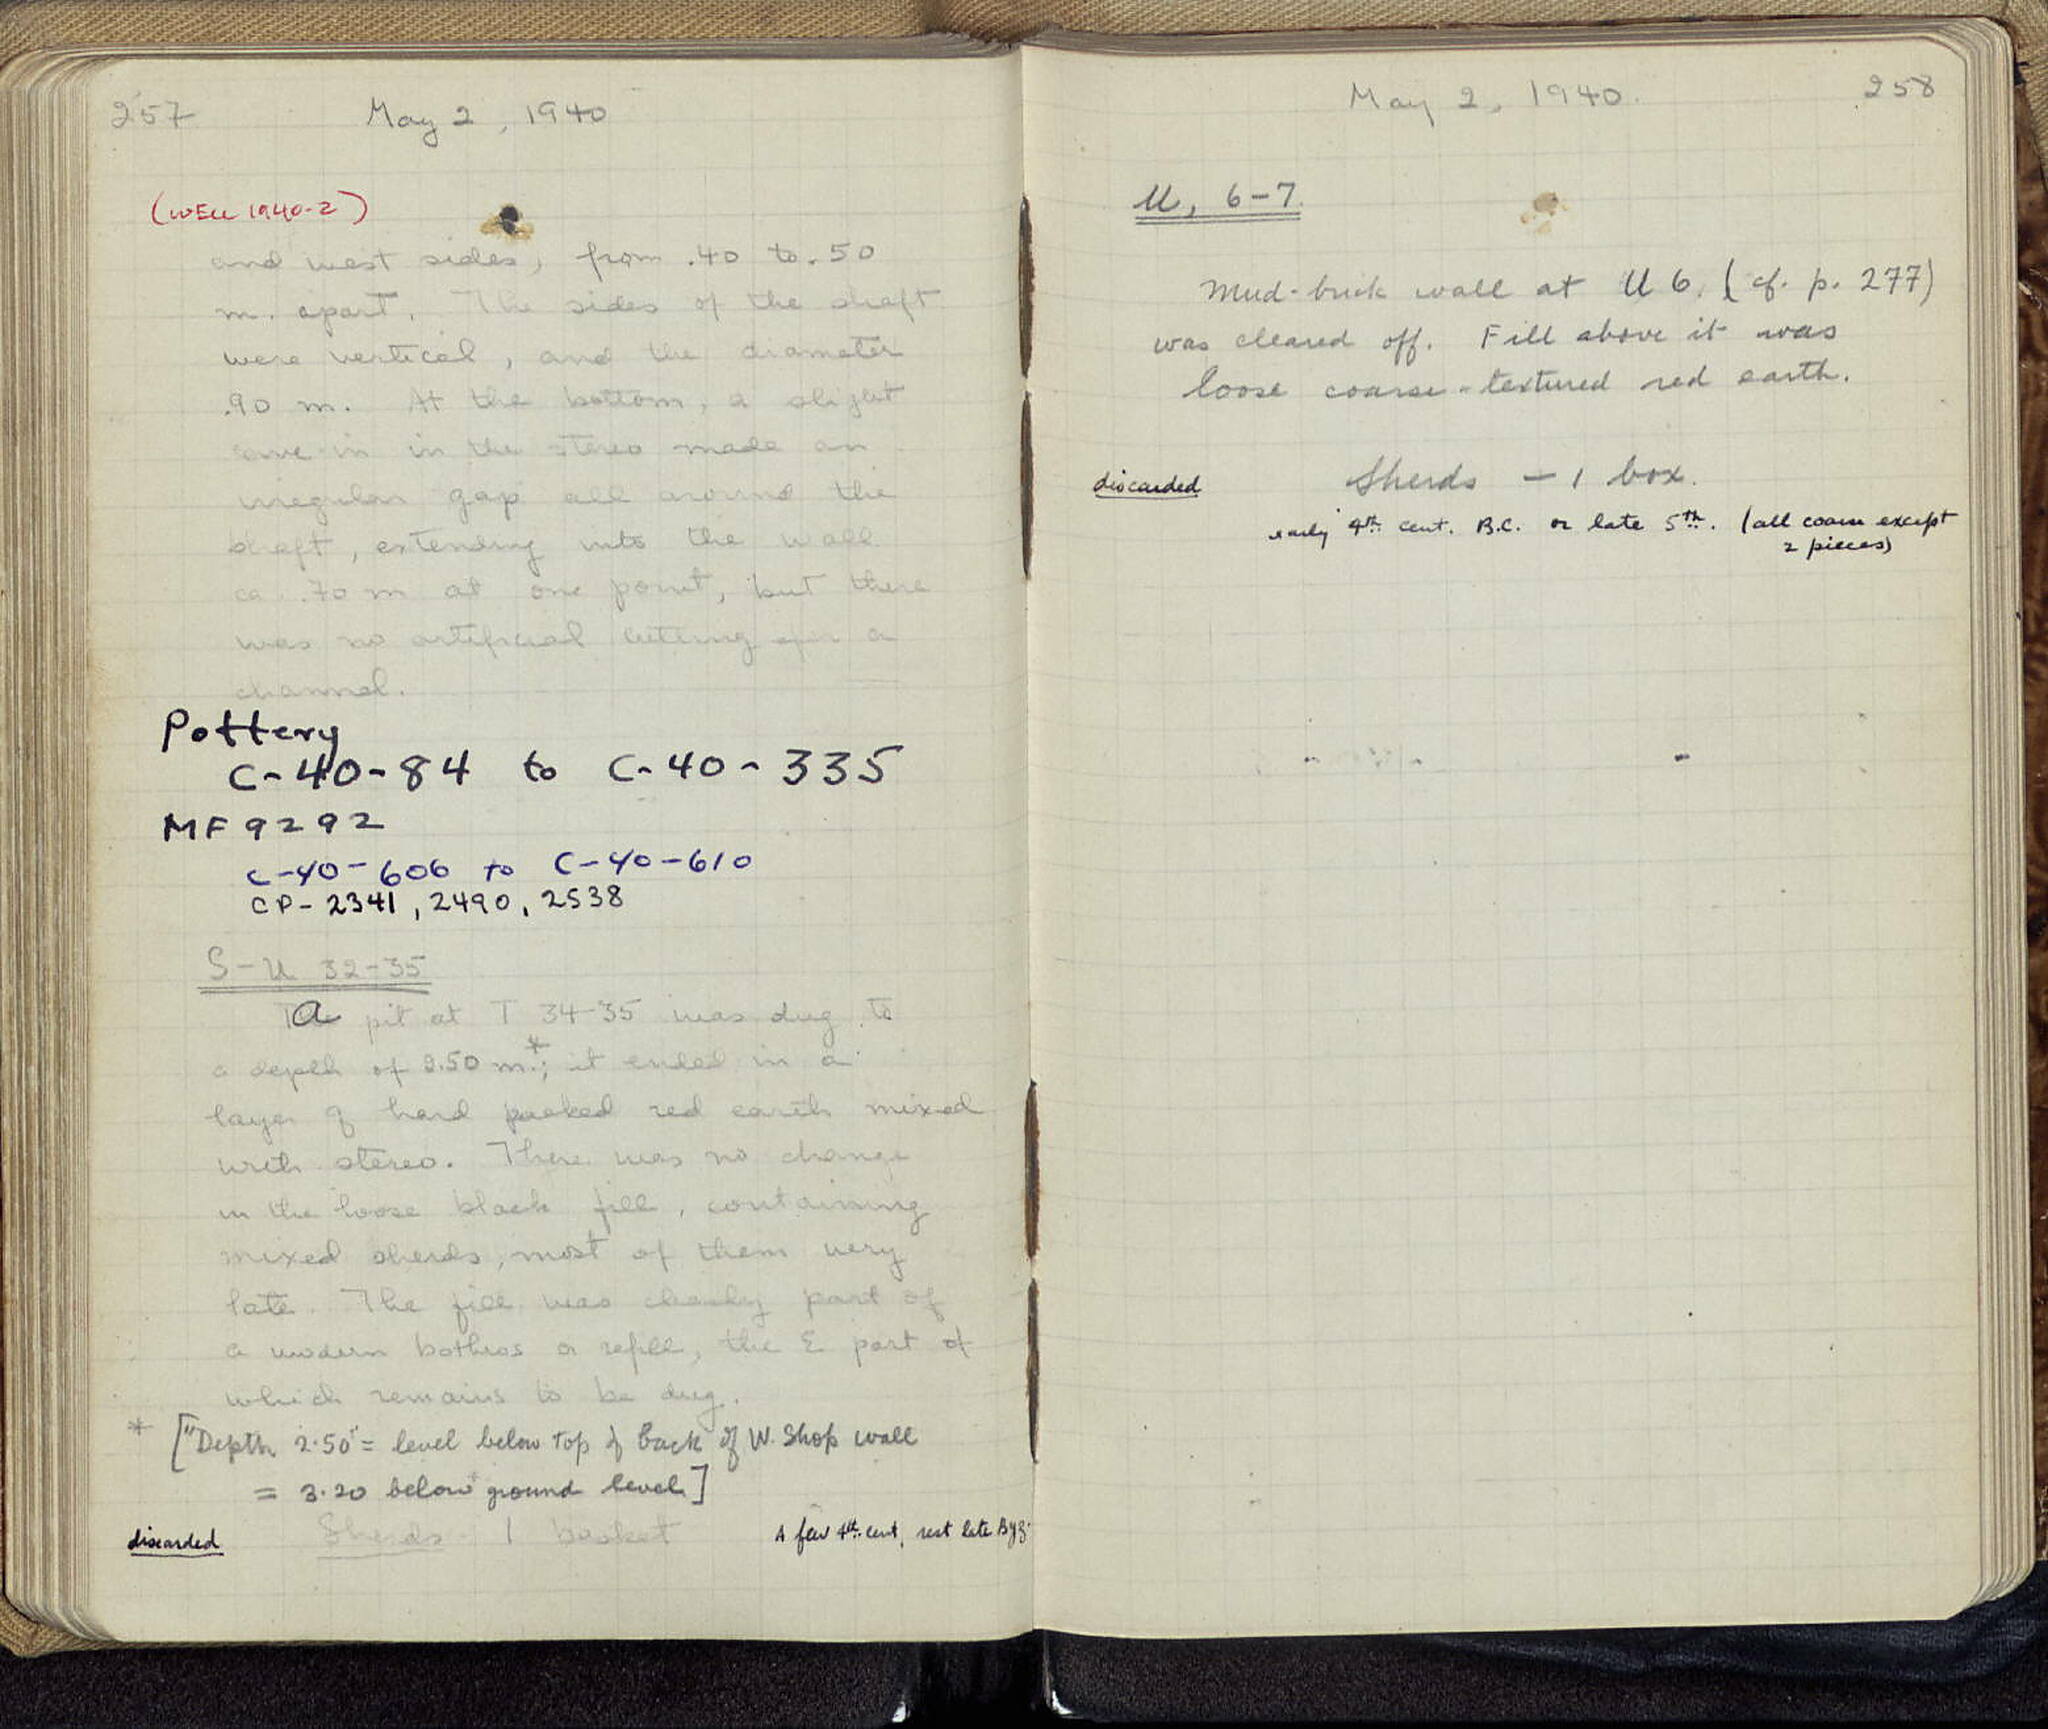 257
May 2, 1940
(WELL 1940-2)
and west sides, from .40 to .50
m. apart. The sides of the shaft
were vertical, and the diameter
.90 m. At the bottom, a slight
cave-in in the stereo made an
irregular gap all around the
shaft, extending into the wall
ca. .70 m at one point, but there
was no artificial cutting for a
channel.
Pottery
C-40-84 to C-40-335
MF 9292
C-40-606 to C-40-610
CP-2341, 2490, 2538
S-U 32-35
A pit at T 34-35 was dug to
a depth of 2.50 m.*; it ended in a
layer of hard packed red earth mixed
with stereo. There was no change
in the loose black fill, containing
mixed sherds, most of them very
late. The fill was clearly part of
a modern bothros or refill, the E part of
which remains to be dug.
* ["Depth 2.50" = level below top of back of W. Shop wall
= 3.20 below ground level]
discarded Sherds - 1 basket A few 4th cent, rest late Byz.
May 2, 1940.
258
U, 6-7.
Mud-brick wall at U 6. (cf. p. 277)
was cleared off. Fill above it was
loose coarse-textured red earth.
discarded Sherds - 1 box.
early 4th cent. B.C. or late 5th. (all coarse except
2 pieces)